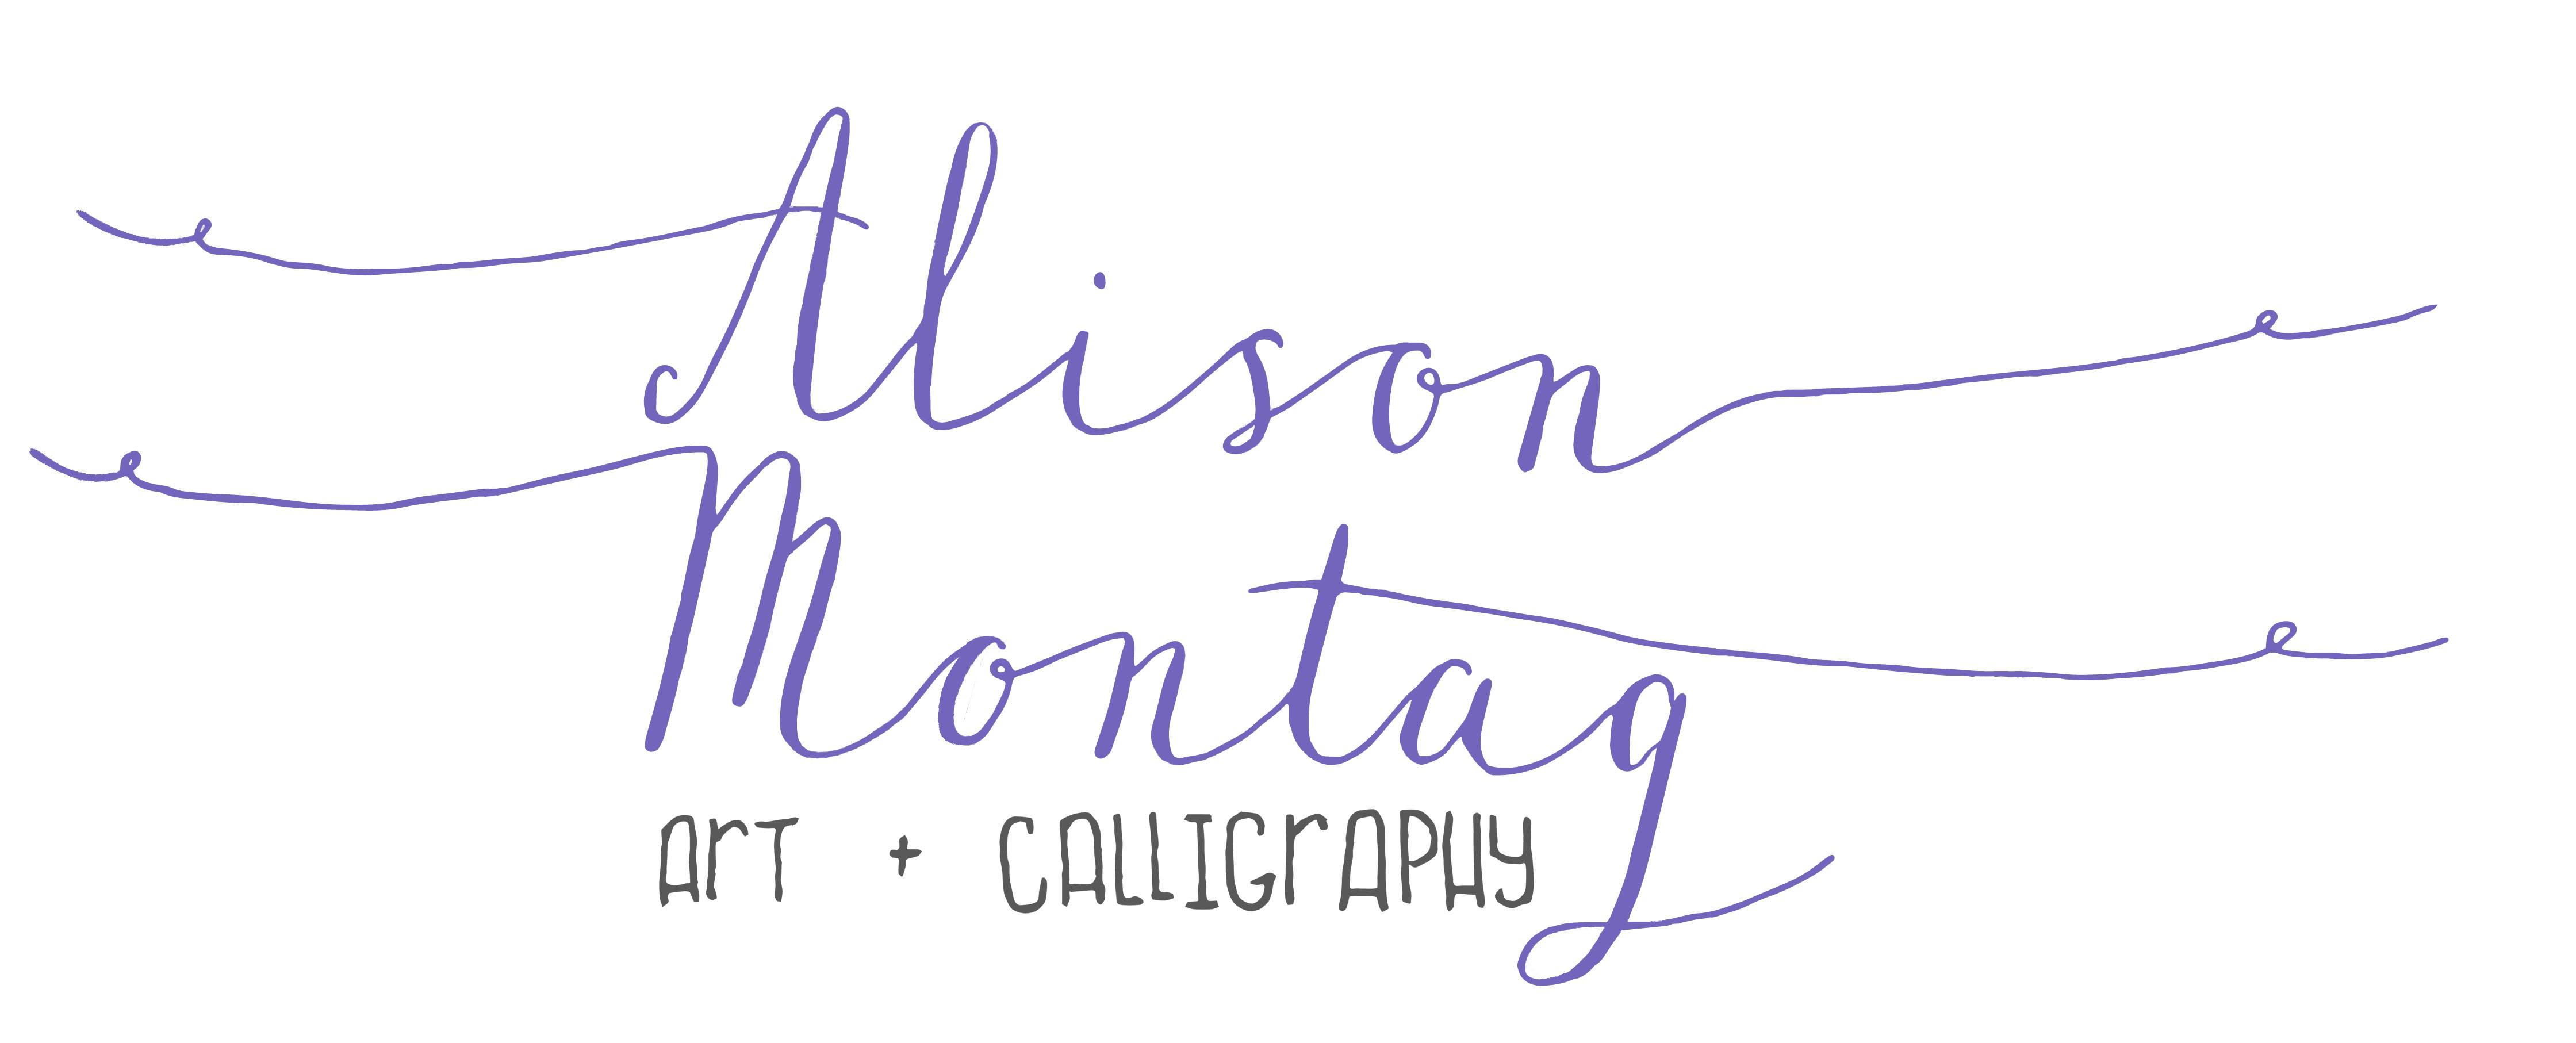 Alison
Montag
ArT + CALLIGrAPHY